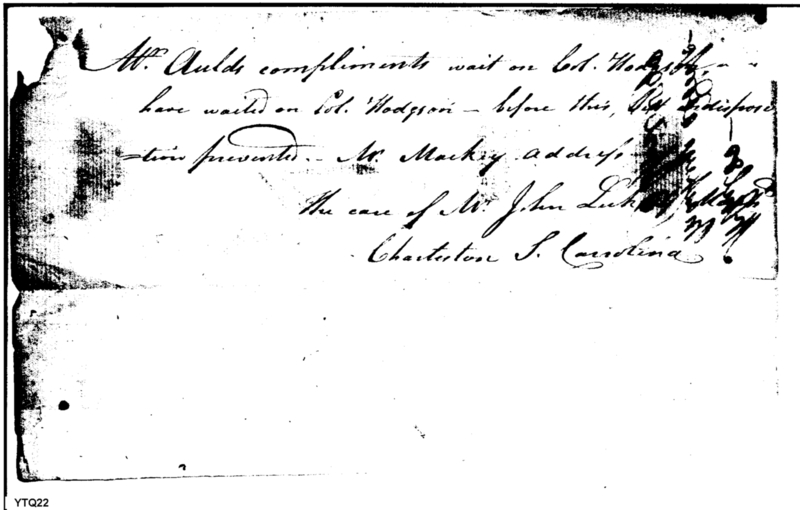 Mr. Aulds compliments wait on Col. Hodgson,
have waited on Col. Hodgson – before this, but indispose
=tion prevented – Mr. Mackey address
the care of Mr. John
Charleston S. Carrolina
YTQ22